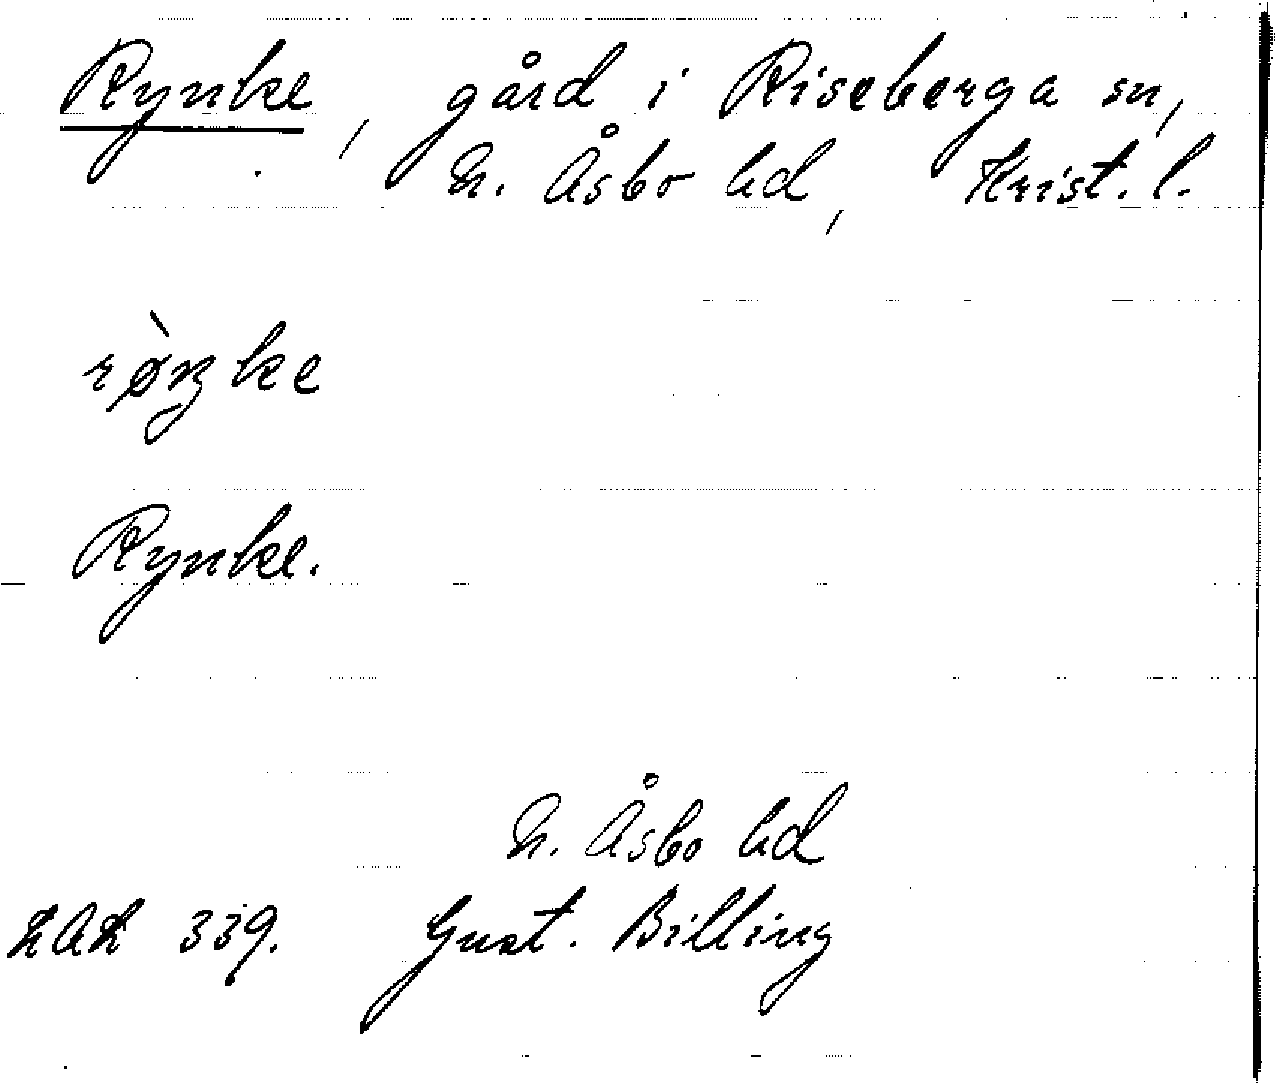 Rynke, gård i Riseberga sn,
N. Åsbo hd, Krist. l.
rø̀ŋke
Rynke.
N. Åsbo hd
LAL 339. Gust. Billing